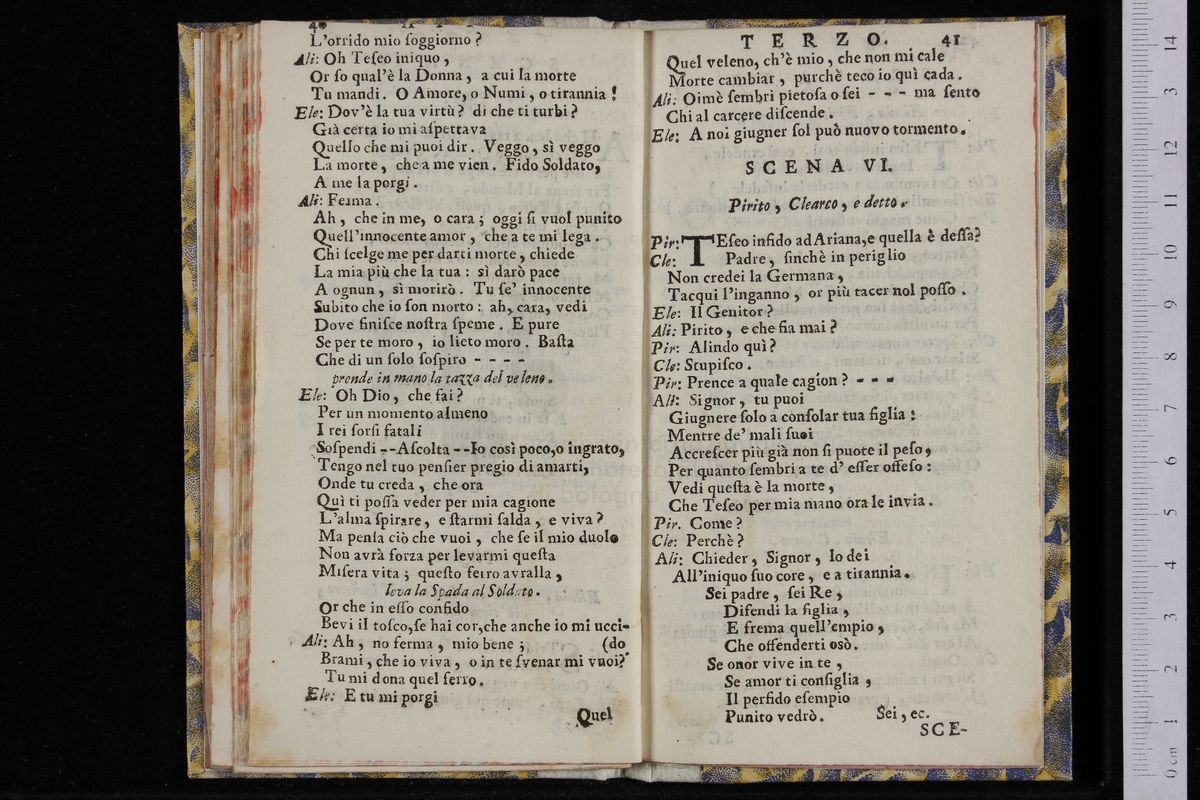 L'orrido mio ſoggiorno?
Ali: Oh Teſeo iniquo,
Or ſo qual'è la Donna, a cui la morte
Tu mandi. O Amore, o Numi, o tirannia!
Ele: Dov'è la tua virtù? di che ti turbi?
Già certa io mi aſpettava
Quelſo che mi puoi dir. Veggo, sì veggo
La morte, che a me vien. Fido Soldato,
A me la porgi.
Ali: Ferma.
Ah, che in me, o cara; oggi ſi vuol punito
Quell'innocente amor, che a te mi lega.
Chi ſcelge me per darti morte, chiede
La mia più che la tua: sì darò pace
A ognun, sì morirò. Tu ſe' innocente
Subito che io ſon morto: ah, cara, vedi
Dove finiſce noſtra ſpeme. E pure
Se per te moro, io lieto moro. Baſta
Che di un ſolo ſoſpiro - - - -
prende in mano la tazza del veleno.
Ele: Oh Dio, che fai?
Per un momento almeno
I rei ſorſi fatali
Soſpendi -- Aſcolta -- Io così poco, o ingrato,
Tengo nel tuo penſier pregio di amarti,
Onde tu creda, che ora
Quì ti poſſa veder per mia cagione
L'alma ſpirare, e ſtarmi ſalda, e viva?
Ma penſa ciò che vuoi, che ſe il mio duolo
Non avrà forza per levarmi queſta
Miſera vita; queſto ferro avralla,
leva la Spada al Soldato.
Or che in eſſo confido
Bevi il toſco, ſe hai cor, che anche io mi ucci-
Ali: Ah, no ferma, mio bene; (do
Brami, che io viva, o in te ſvenar mi vuoi?
Tu mi dona quel ferro.
Ele: E tu mi porgi
Quel
TERZO. 41
Quel veleno, ch'è mio, che non mi cale
Morte cambiar, purchè teco io quì cada.
Ali: Oimè ſembri pietoſa o ſei - - - ma ſento
Chi al carcere diſcende.
Ele: A noi giugner ſol può nuovo tormento.
SCENA VI.
Pirito, Clearco, e detto.
Pir: TEſeo infido ad Ariana, e quella è deſſa?
Cle: Padre, ſinchè in periglio
Non credei la Germana,
Tacqui l'inganno, or più tacer nol poſſo.
Ele: Il Genitor?
Ali: Pirito, e che fia mai?
Pir: Alindo quì?
Cle: Stupiſco.
Pir: Prence a quale cagion? - - -
Ali: Signor, tu puoi
Giugnere ſolo a conſolar tua figlia:
Mentre de' mali ſuoi
Accreſcer più già non ſi puote il peſo,
Per quanto ſembri a te d' eſſer offeſo:
Vedi queſta è la morte,
Che Teſeo per mia mano ora le invia.
Pir. Come?
Cle: Perchè?
Ali: Chieder, Signor, lo dei
All'iniquo ſuo core, e a tirannia.
Sei padre, ſei Re,
Difendi la figlia,
E frema quell'empio,
Che offenderti osò.
Se onor vive in te,
Se amor ti conſiglia,
Il perfido eſempio
Punito vedrò. Sei, ec.
SCE-